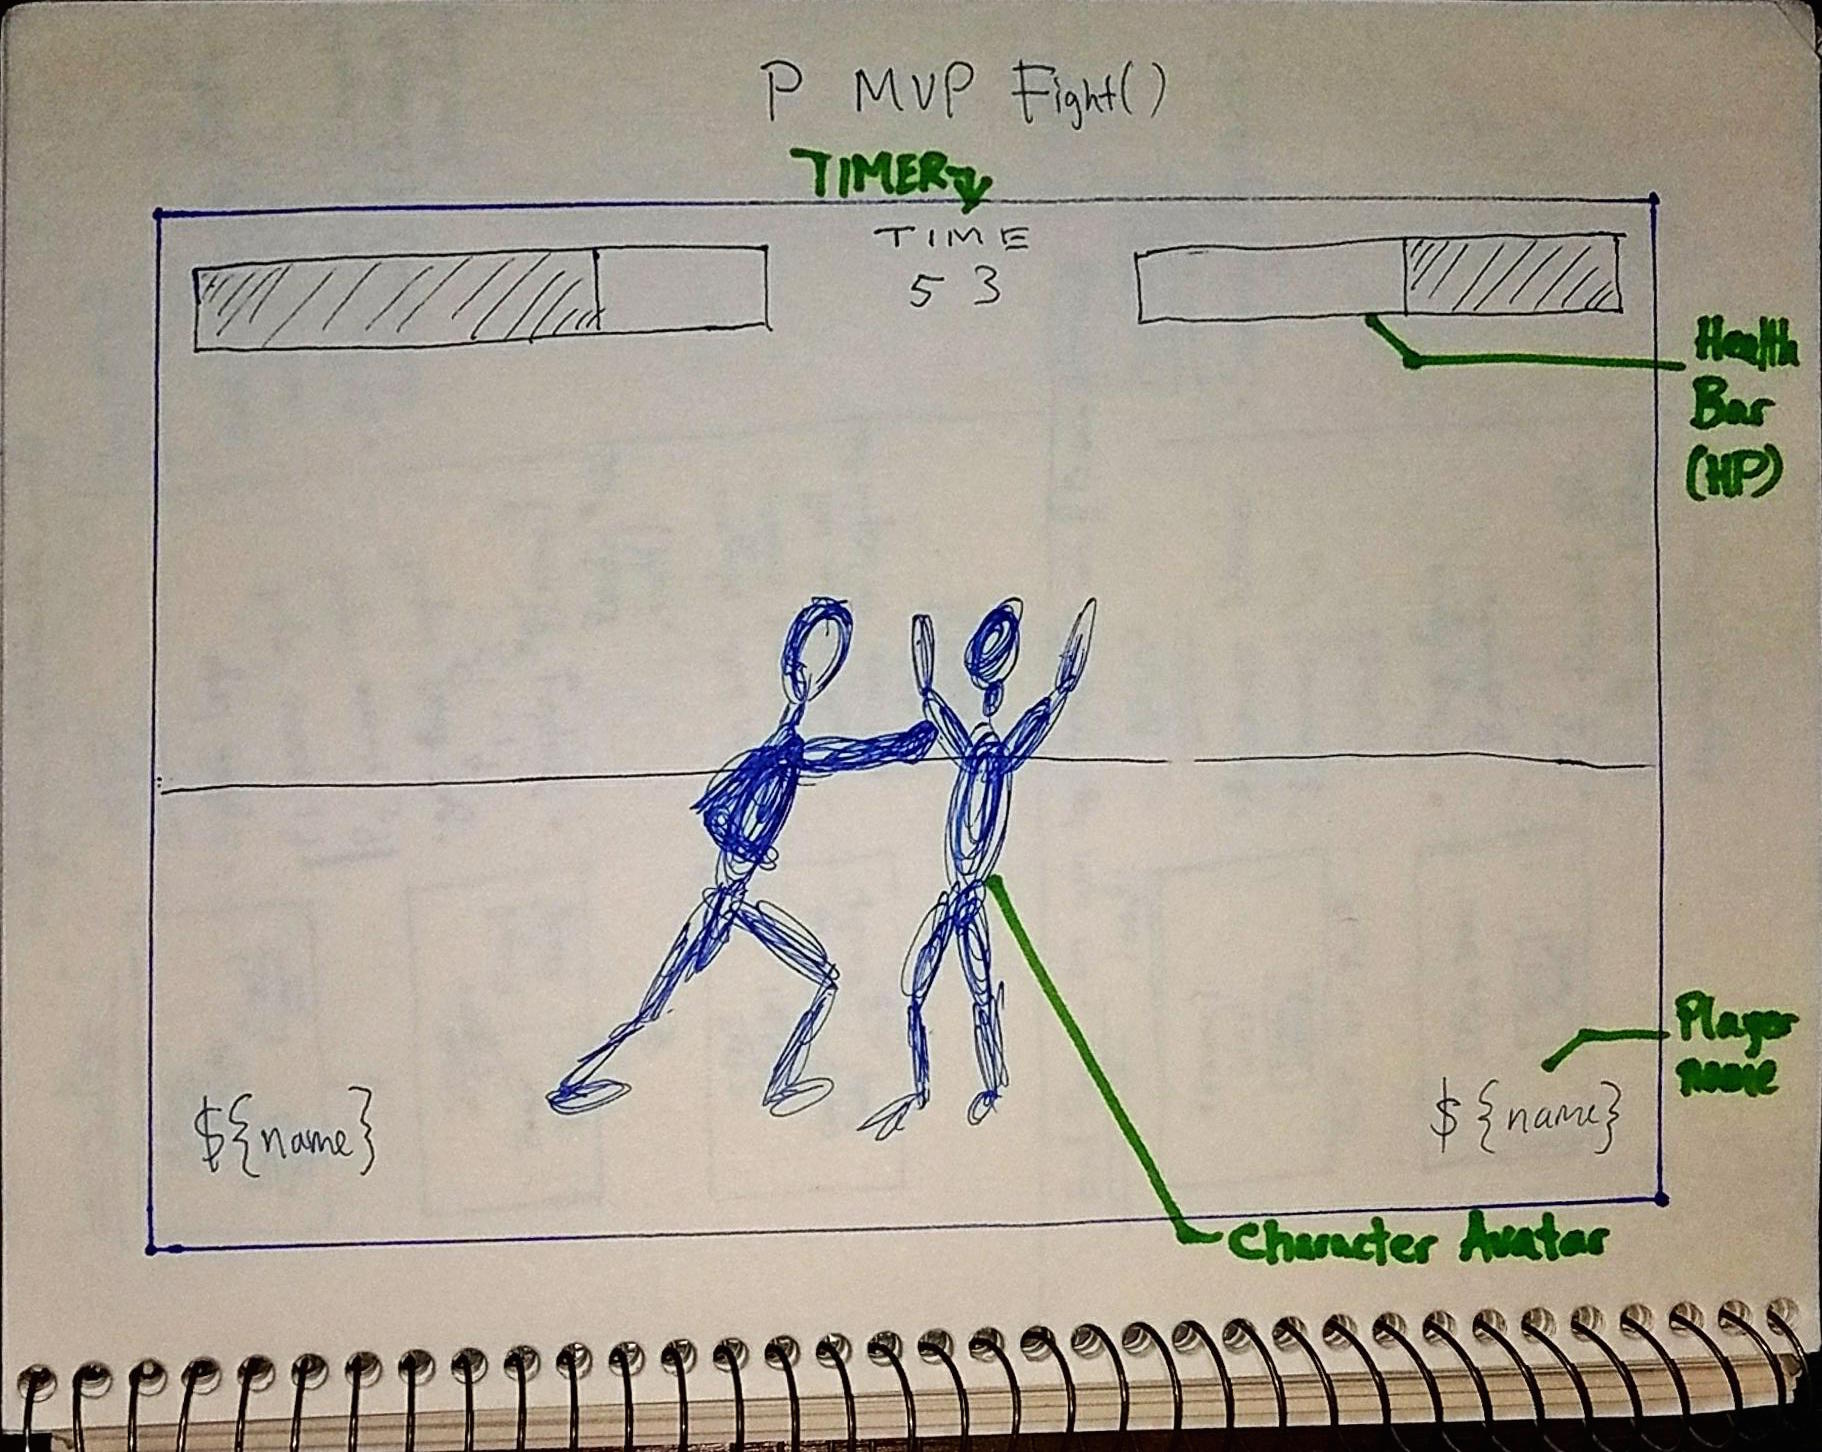 P MVP Fight()
TIMER
TIME
53
Health
Bar
(HP)
Player
name
${name}
${name}
Character Avatar